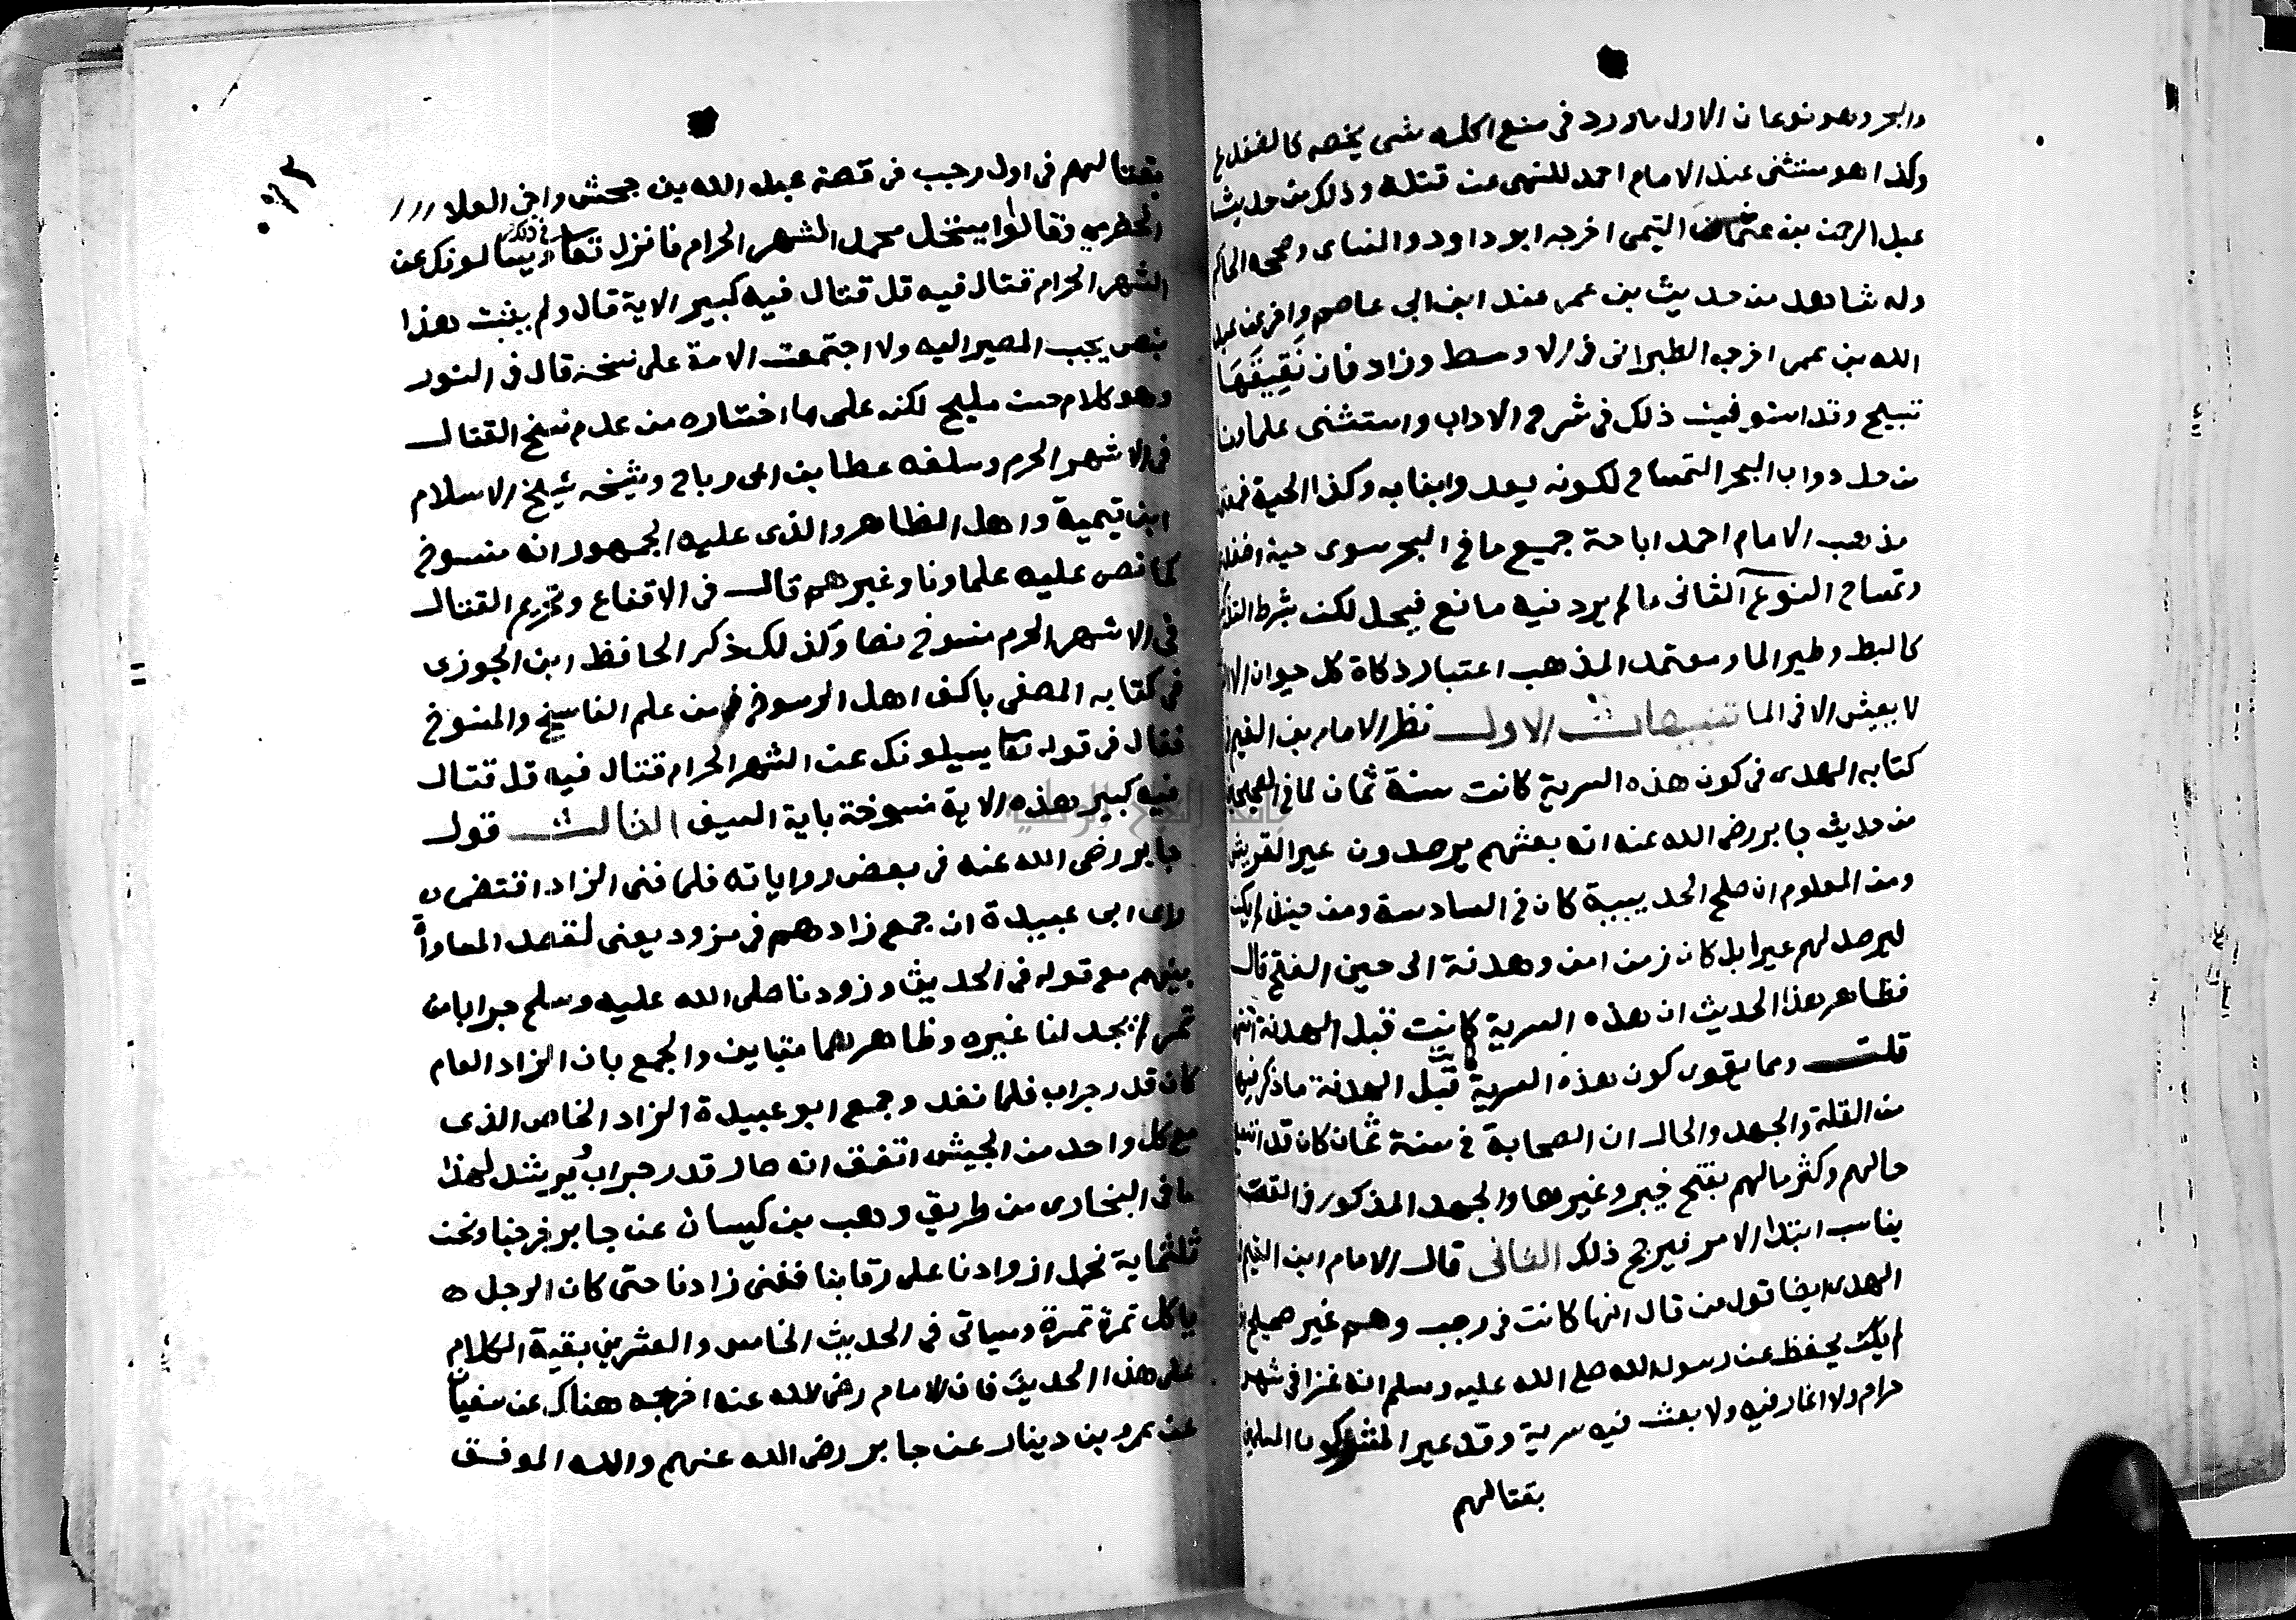 والبحر وهو نوعان الاول ما ورد في منع اكله شي يخصه كالضفدع
وكذا هو مستثنى عند الامام احمد للنهى عن قتله وذلك من حديث
عبد الرحمن بن عثمان التيمى اخرجه ابو داود والنساى وصححه الحاكم
وله شاهد من حديث بن عمر عند ابن ابى عاصم واخر عن عبد
الله بن عمر اخرجه الطبرانى فى الاوسط وزاد فان نَقِيقَهَا
تسبيح وقد استوفيت ذلك فى شرح الاداب واستثنى علماونا
من حل دواب البحر التمساح لكونه يعدوا بنابه وكذا الحية فمعتمد
مذهب الامام احمد اباحة جميع ما في البحر سوى حية وضفدع
وتمساح النوع الثانى ما لم يرد فيه مانع فيحل لكن بشرط التذكية
كالبط وطير الما ومعتمد المذهب اعتبار ذكاة كل حيوان الا ما
لا يعيش الا فى الما تنبيهات الاول نظر الامام بن القيم في
كتابه الهدى فى كون هذه السرية كانت سنة ثمان لما في الصحيحين
من حديث جابر رضى الله عنه انه بعثهم يرصدون عير القريش
ومن المعلوم ان صلح الحديبية كان في السادسة ومن حينئذ لم يكن
ليرصد لهم عيرا بل كان زمن امن وهدنة الى حين الفتح قال
فظاهر هذا الحديث ان هذه السرية كانت قبل الهدنة انتهى
قلت ومما يقوى كون هذه السرية قبل الهدنة ما ذكر فيها
من القلة والجهد والحال ان الصحابة في سنة ثمان كان قد اتسع
حالهم وكثر مالهم بفتح خيبر وغيرها والجهد المذكور في القصة
يناسب ابتدا الامر فيرجح ذلك الثانى قال الامام ابن القيم في
الهدى ايضا قول من قال انها كانت فى رجب وهم غير صحيح اذ
لم يكن يحفظ عن رسول الله صلى الله عليه وسلم انه غزا في شهر
حرام ولا اغار فيه ولا بعث فيه سرية وقد عير المشركون المسلمين
بقتالهم
بقتالهم فى اول رجب فى قصة عبد الله بن جحش وابن العلا
الحضرمي وقالوا يستحل محمد الشهر الحرام فانزل تعا في ذلك يسالونك عن
الشهر الحرام قتال فيه قل قتال فيه كبير الاية قال ولم يثبت هذا
بنص يجب المصير اليه ولا اجتمعت الامة على نسخه قال فى النور
وهو كلام حسن مليح لكنه على ما اختاره من عدم نسخ القتال
فى الاشهر الحرم وسلفه عطا بن ابى رباح وشيخه شيخ الاسلام
ابن تيمية واهل الظاهر والذى عليه الجمهور انه منسوخ
كما نص عليه علماونا وغيرهم قال فى الاقناع وتحريم القتال
فى الاشهر الحرم منسوخ نصا وكذلك ذكر الحافظ ابن الجوزى
فى كتابه المصفى باكف اهل الرسوخ من علم الناسخ والمنسوخ
فقال فى قوله تعا يسيلونك عن الشهر الحرام قتال فيه قل قتال
فيه كبير هذه الاية منسوخة باية السيف الثالث قول
جابر رضى الله عنه فى بعض رواياته فلما فنى الزاد اقتضى
راى ابى عبيدة ان جمع زادهم فى مزود يعنى لقصد المساواة
بينهم مع قوله فى الحديث وزودنا صلى الله عليه وسلم جرابا من
تمر لم يجد لنا غيره وظاهرهما متباين والجمع بان الزاد العام
كان قدر جراب فلما نفد وجمع ابو عبيدة الزاد الخاص الذى
مع كل واحد من الجيش اتفق انه صار قدر جراب ويرشد لهذا
ما فى البخارى من طريق وهب بن كيسان عن جابر خرجنا ونحن
ثلثماية نحمل ازوادنا على رقابنا ففنى زادنا حتى كان الرجل
ياكل تمرة تمرة وسياتى فى الحديث الخامس والعشرين بقية الكلام
على هذا الحديث فان الامام رضى الله عنه اخرجه هناك عن سفيان
عن عمرو بن دينار عن جابر رضى الله عنهم والله الموفق